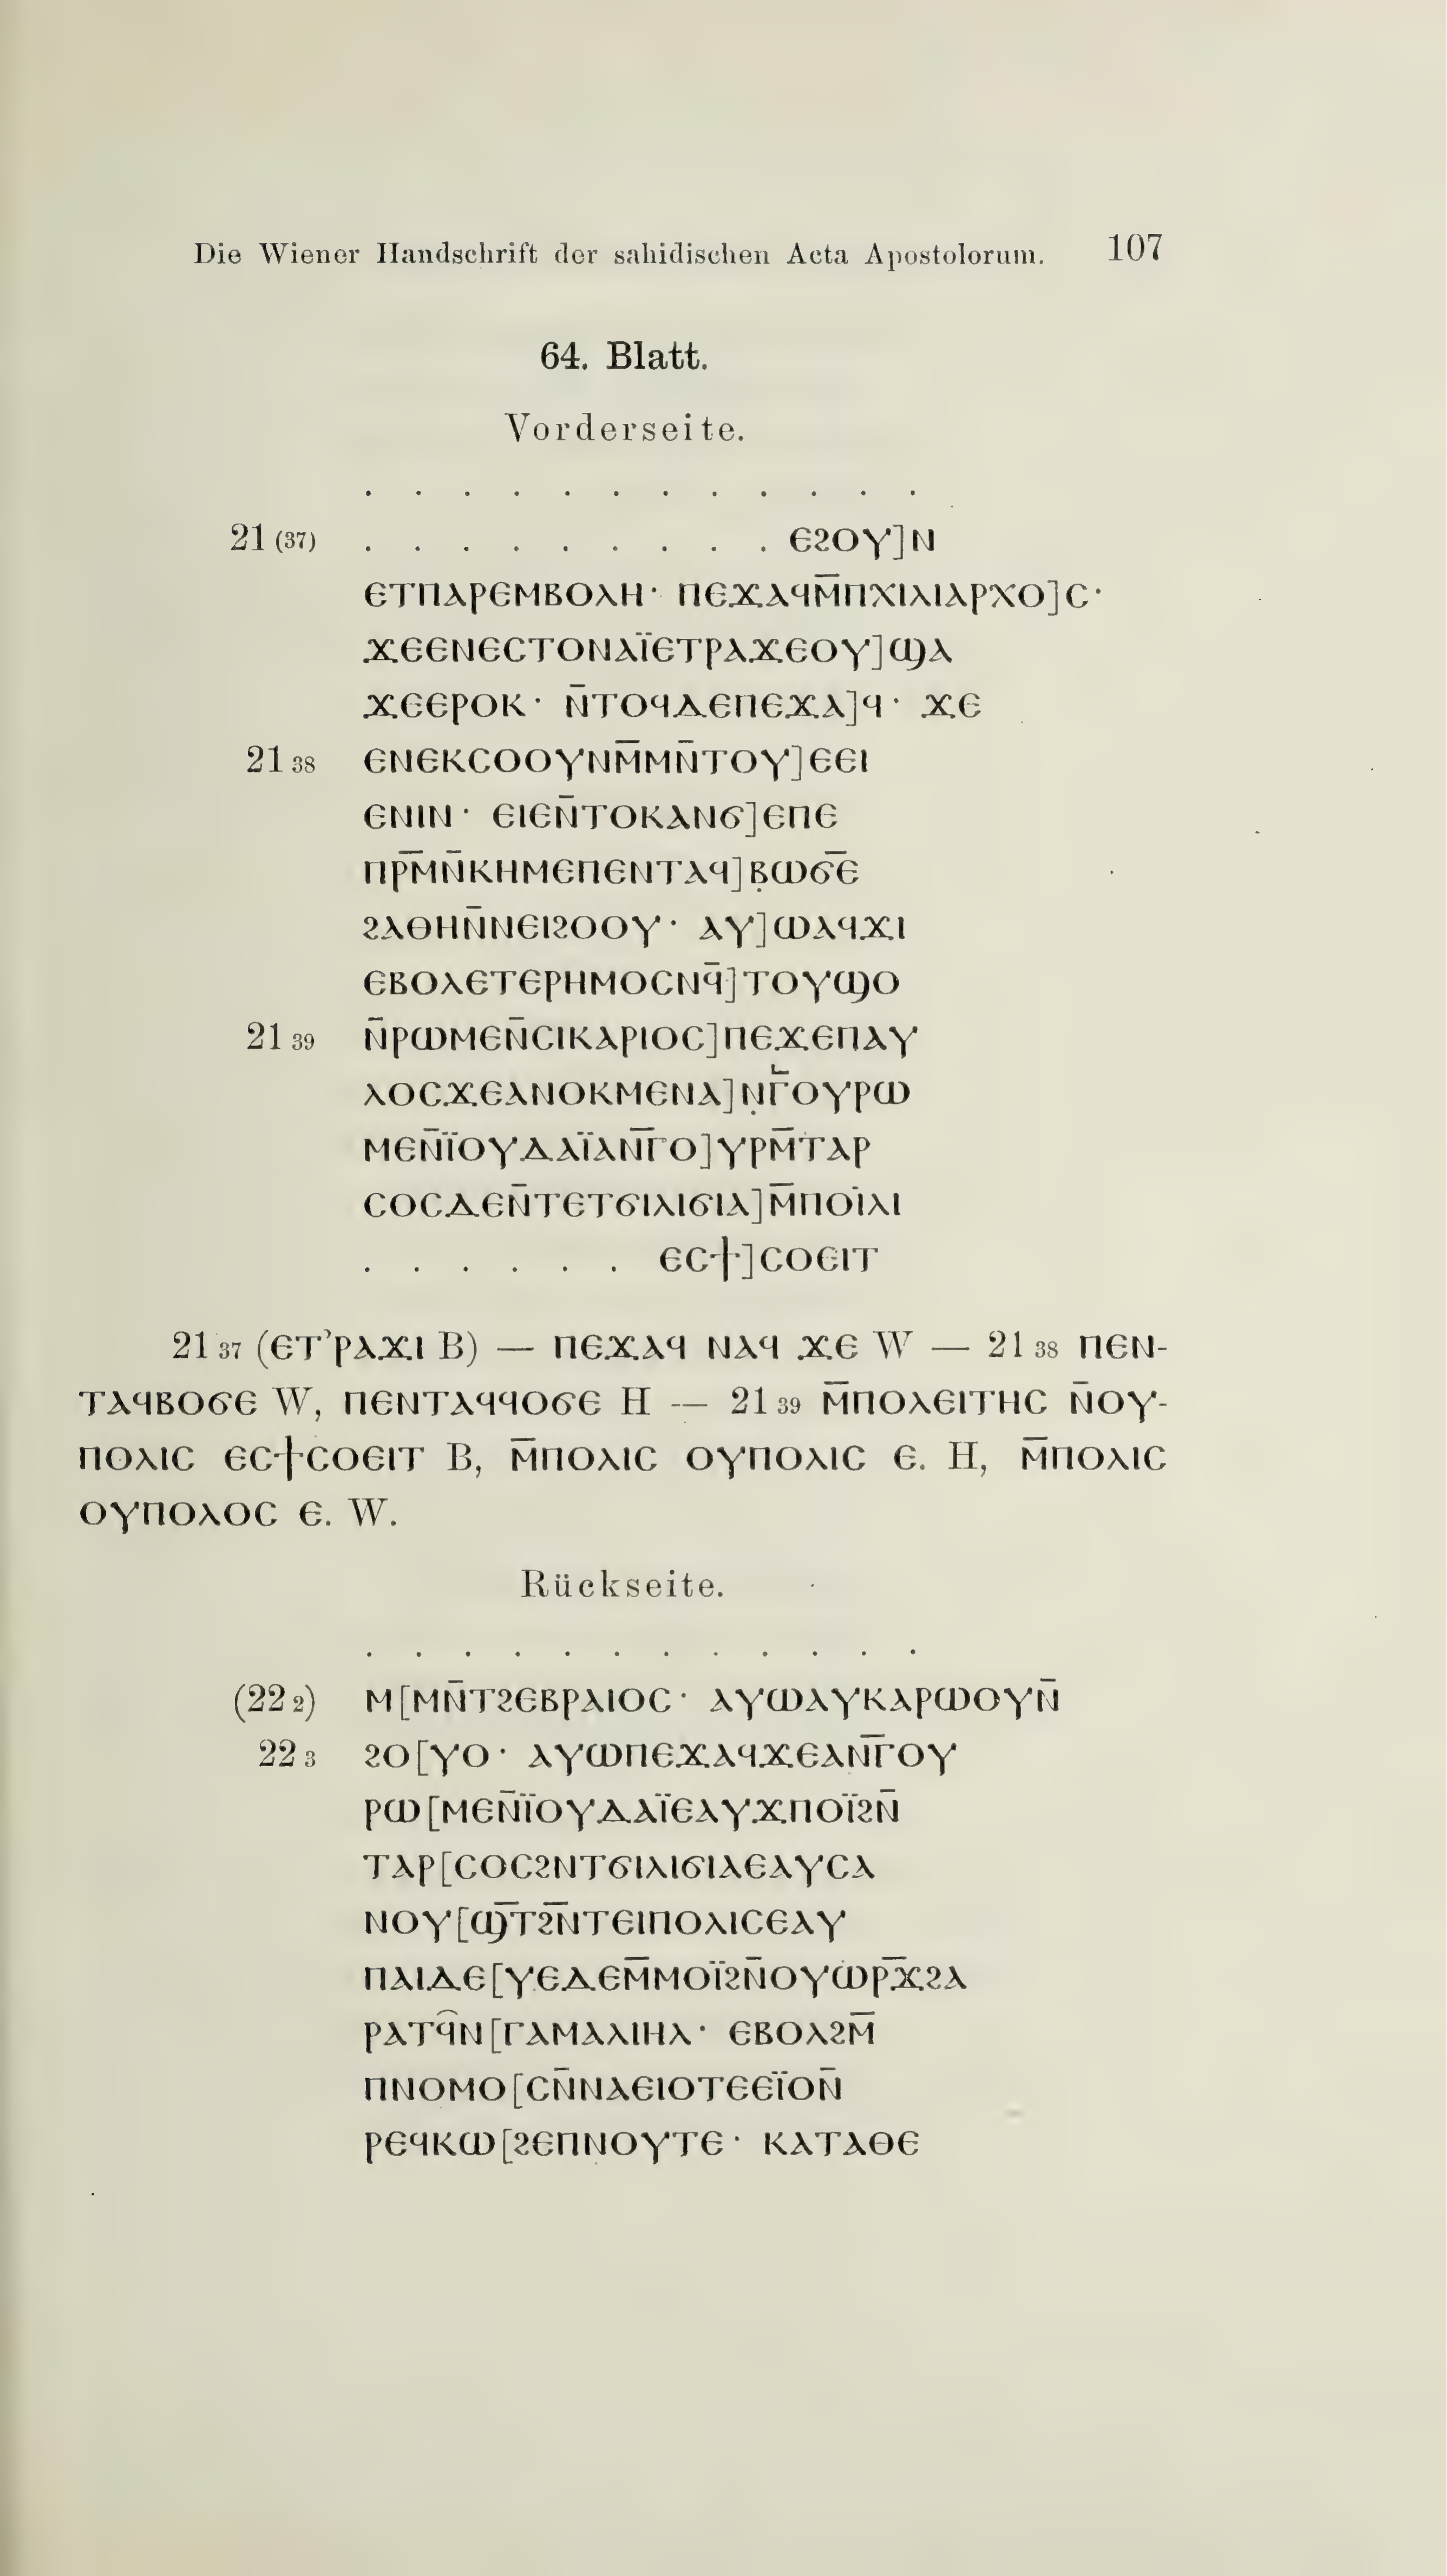 Die Wiener Handschrift der sahidischen Acta Apostolorum. 107
64. Blatt.
Vorderseite.
. . . . . . . . . . . .
21 (37) . . . . . . . . . ⲉϩⲟⲩ]ⲛ
ⲉⲧⲡⲁⲣⲉⲙⲃⲟⲗⲏ· ⲡⲉϫⲁϥⲙ̄ⲡⲭⲓⲗⲓⲁⲣⲭⲟ]ⲥ·
ϫⲉⲉⲛⲉⲥⲧⲟⲛⲁⲓ̈ⲉⲧⲣⲁϫⲉⲟⲩ]ϣⲁ
ϫⲉⲉⲣⲟⲕ· ⲛ̄ⲧⲟϥⲇⲉⲡⲉϫⲁ]ϥ· ϫⲉ
21 38 ⲉⲛⲉⲕⲥⲟⲟⲩⲛⲙ̄ⲙⲛ̄ⲧⲟⲩ]ⲉⲉⲓ
ⲉⲛⲓⲛ· ⲉⲓⲉⲛ̄ⲧⲟⲕⲁⲛϭ]ⲉⲡⲉ
ⲡⲣⲙ̄ⲛ̄ⲕⲏⲙⲉⲡⲉⲛⲧⲁϥ]ⲃ̣ⲱϭ̄ⲉ̄
ϩⲁⲑⲏⲛ̄ⲛⲉⲓϩⲟⲟⲩ· ⲁⲩ]ⲱⲁϥϫⲓ
ⲉⲃⲟⲗⲉⲧⲉⲣⲏⲙⲟⲥⲛϥ̄]ⲧⲟⲩϣⲟ
21 39 ⲛ̄ⲣⲱⲙⲉⲛ̄ⲥⲓⲕⲁⲣⲓⲟⲥ]ⲡⲉϫⲉⲡⲁⲩ
ⲗⲟⲥϫⲉⲁⲛⲟⲕⲙⲉⲛⲁ]ⲛ̣ⲅ̄ⲟⲩⲣⲱ
ⲙⲉⲛ̄ⲓ̈ⲟⲩⲇⲁⲓ̈ⲁⲛ̄ⲅ̄ⲟ]ⲩⲣⲙ̄ⲧⲁⲣ
ⲥⲟⲥⲇⲉⲛ̄ⲧⲉⲧϭⲓⲗⲓϭⲓⲁ]ⲙ̄ⲡⲟⲓ̈ⲗⲓ
. . . . . . ⲉⲥϯ]ⲥⲟⲉⲓⲧ
21 37 (ⲉⲧ’ⲣⲁϫⲓ B) — ⲡⲉϫⲁϥ ⲛⲁϥ ϫⲉ W — 21 38 ⲡⲉⲛ-
ⲧⲁϥⲃⲟϭⲉ W, ⲡⲉⲛⲧⲁϥϥⲟϭⲉ H — 21 39 ⲙ̄ⲡⲟⲗⲉⲓⲧⲏⲥ ⲛ̄ⲟⲩ-
ⲡⲟⲗⲓⲥ ⲉⲥϯⲥⲟⲉⲓⲧ B, ⲙ̄ⲡⲟⲗⲓⲥ ⲟⲩⲡⲟⲗⲓⲥ ⲉ. H, ⲙ̄ⲡⲟⲗⲓⲥ
ⲟⲩⲡⲟⲗⲟⲥ ⲉ. W.
Rückseite.
. . . . . . . . . . . .
(22 2) ⲙ[ⲙⲛ̄ⲧϩⲉⲃⲣⲁⲓⲟⲥ· ⲁⲩⲱⲁⲩⲕⲁⲣⲱⲟⲩⲛ̄
22 3 ϩⲟ[ⲩⲟ· ⲁⲩⲱⲡⲉϫⲁϥϫⲉⲁⲛ̄ⲅ̄ⲟⲩ
ⲣⲱ[ⲙⲉⲛ̄ⲓ̈ⲟⲩⲇⲁⲓ̈ⲉⲁⲩϫⲡⲟⲓ̈ϩⲛ̄
ⲧⲁⲣ[ⲥⲟⲥϩⲛⲧϭⲓⲗⲓϭⲓⲁⲉⲁⲩⲥⲁ
ⲛⲟⲩ[ϣ̄ⲧ̄ϩ̄ⲛ̄ⲧⲉⲓⲡⲟⲗⲓⲥⲉⲁⲩ
ⲡⲁⲓⲇⲉ[ⲩⲉⲇⲉⲙ̄ⲙⲟⲓ̈ϩⲛ̄ⲟⲩⲱⲣ̄ϫ̄ϩⲁ
ⲣⲁⲧϥ̂ⲛ[ⲅⲁⲙⲁⲗⲓⲏⲗ· ⲉⲃⲟⲗϩⲙ̄
ⲡⲛⲟⲙⲟ[ⲥⲛ̄ⲛⲁⲉⲓⲟⲧⲉⲉⲓ̈ⲟⲛ̄
ⲣⲉϥⲕⲱ[ϩⲉⲡⲛⲟⲩⲧⲉ· ⲕⲁⲧⲁⲑⲉ